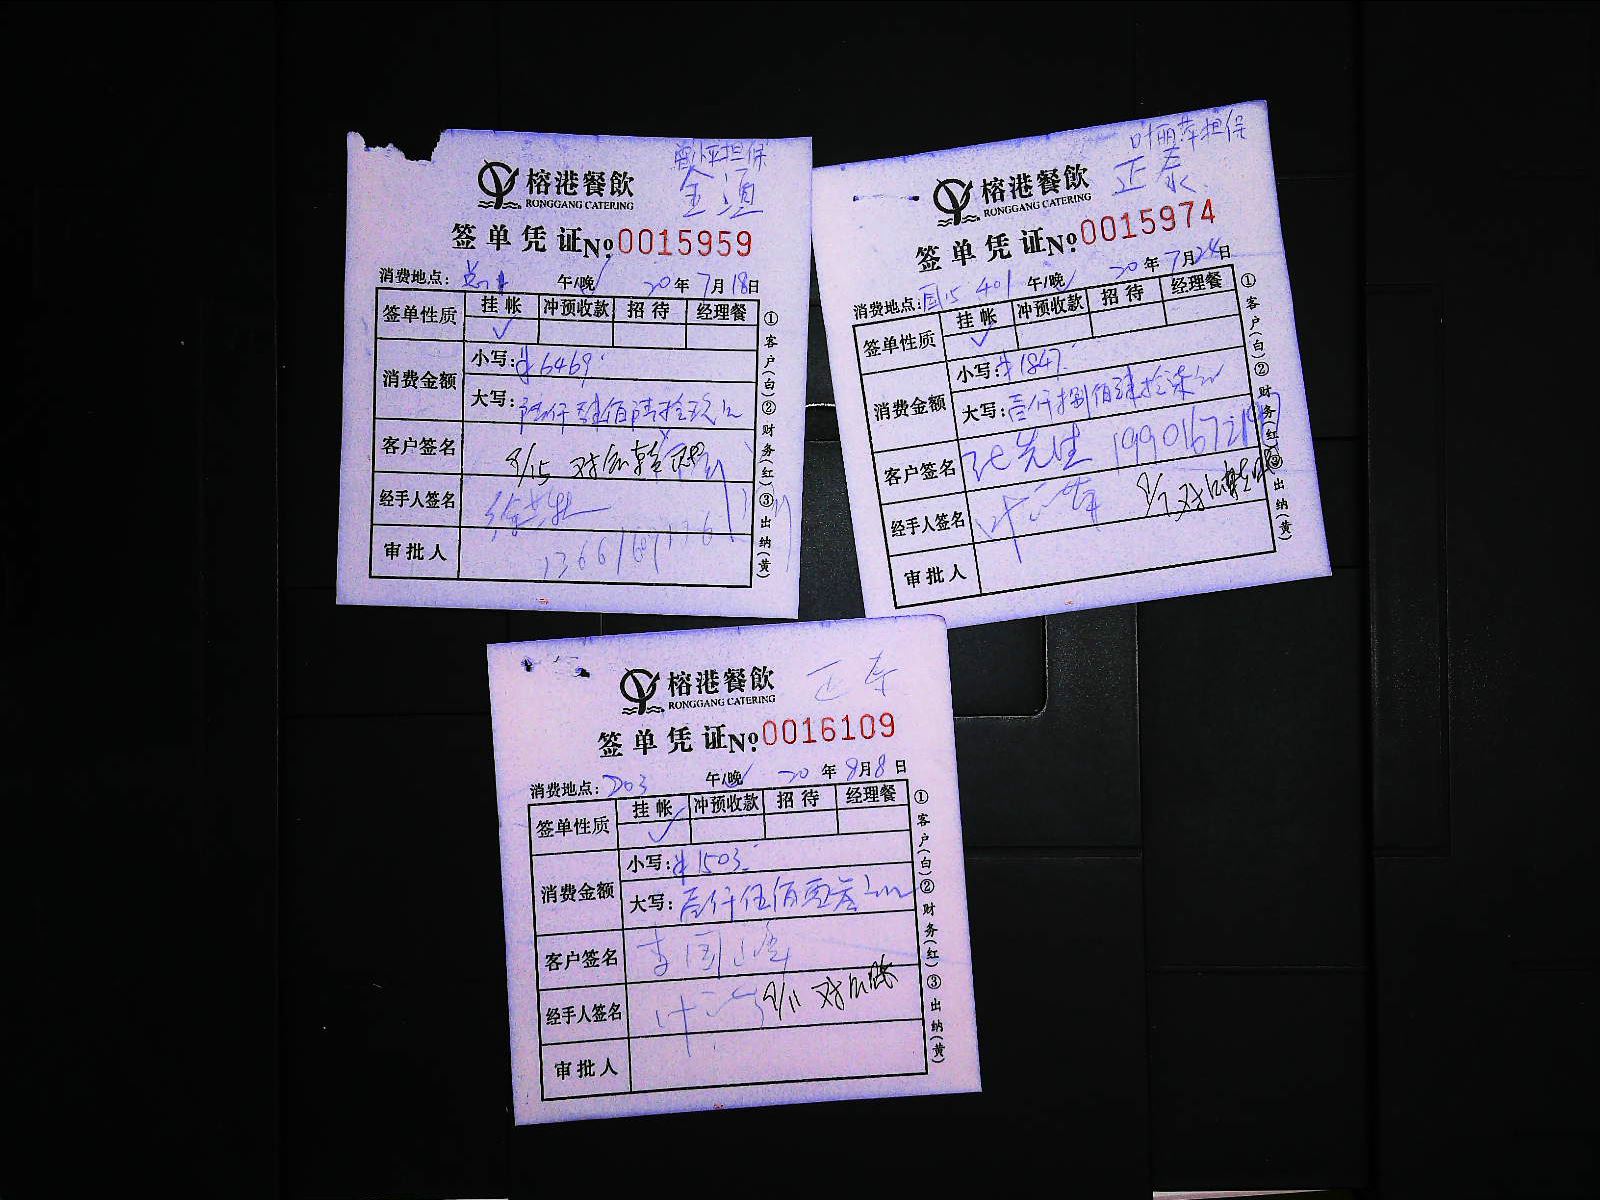 担保
榕港餐飲
RONGGANG CATERING
签单凭证 № 0015959
消费地点: 午/晚 20年7月18日
签单性质 挂帐 冲预收款 招待 经理餐
✓
消费金额 小写: ¥6469
大写: 陆仟肆佰陆拾玖元
客户签名 8/15 对
经手人签名
审批人
①客户(白)②财务(红)③出纳(黄)
叶丽萍担保
正泰
榕港餐飲
RONGGANG CATERING
签单凭证 № 0015974
消费地点: 401 午/晚 20年7月24日
签单性质 挂帐 冲预收款 招待 经理餐
✓
消费金额 小写: ¥1847
大写: 壹仟捌佰肆拾柒元
客户签名 张先生
经手人签名 叶
审批人
①客户(白)②财务(红)③出纳(黄)
正泰
榕港餐飲
RONGGANG CATERING
签单凭证 № 0016109
消费地点: D03 午/晚 20年8月8日
签单性质 挂帐 冲预收款 招待 经理餐
✓
消费金额 小写: ¥1503
大写: 壹仟伍佰零叁元
客户签名 李国峰
经手人签名 叶 8/11 对
审批人
①客户(白)②财务(红)③出纳(黄)